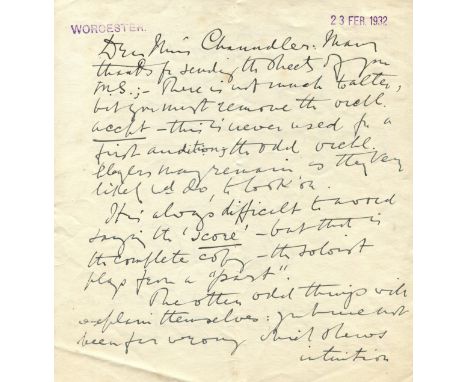 WORCESTER.
23 FEB. 1932
Dear Miss Chaundler: Many
thanks for sending the sheets of your
M.S.;- There is not much to alter,
but you must remove the orchl.
accpt - this is never used for a
first audition; the odd orchl.
players may remain as they very
likely wd do, to 'look on'.
It is always difficult to avoid
saying the 'score' - but that is
the complete copy - the soloist
plays from a "part".
The other odd things will
explain themselves: you have not
been far wrong which shews
intuition